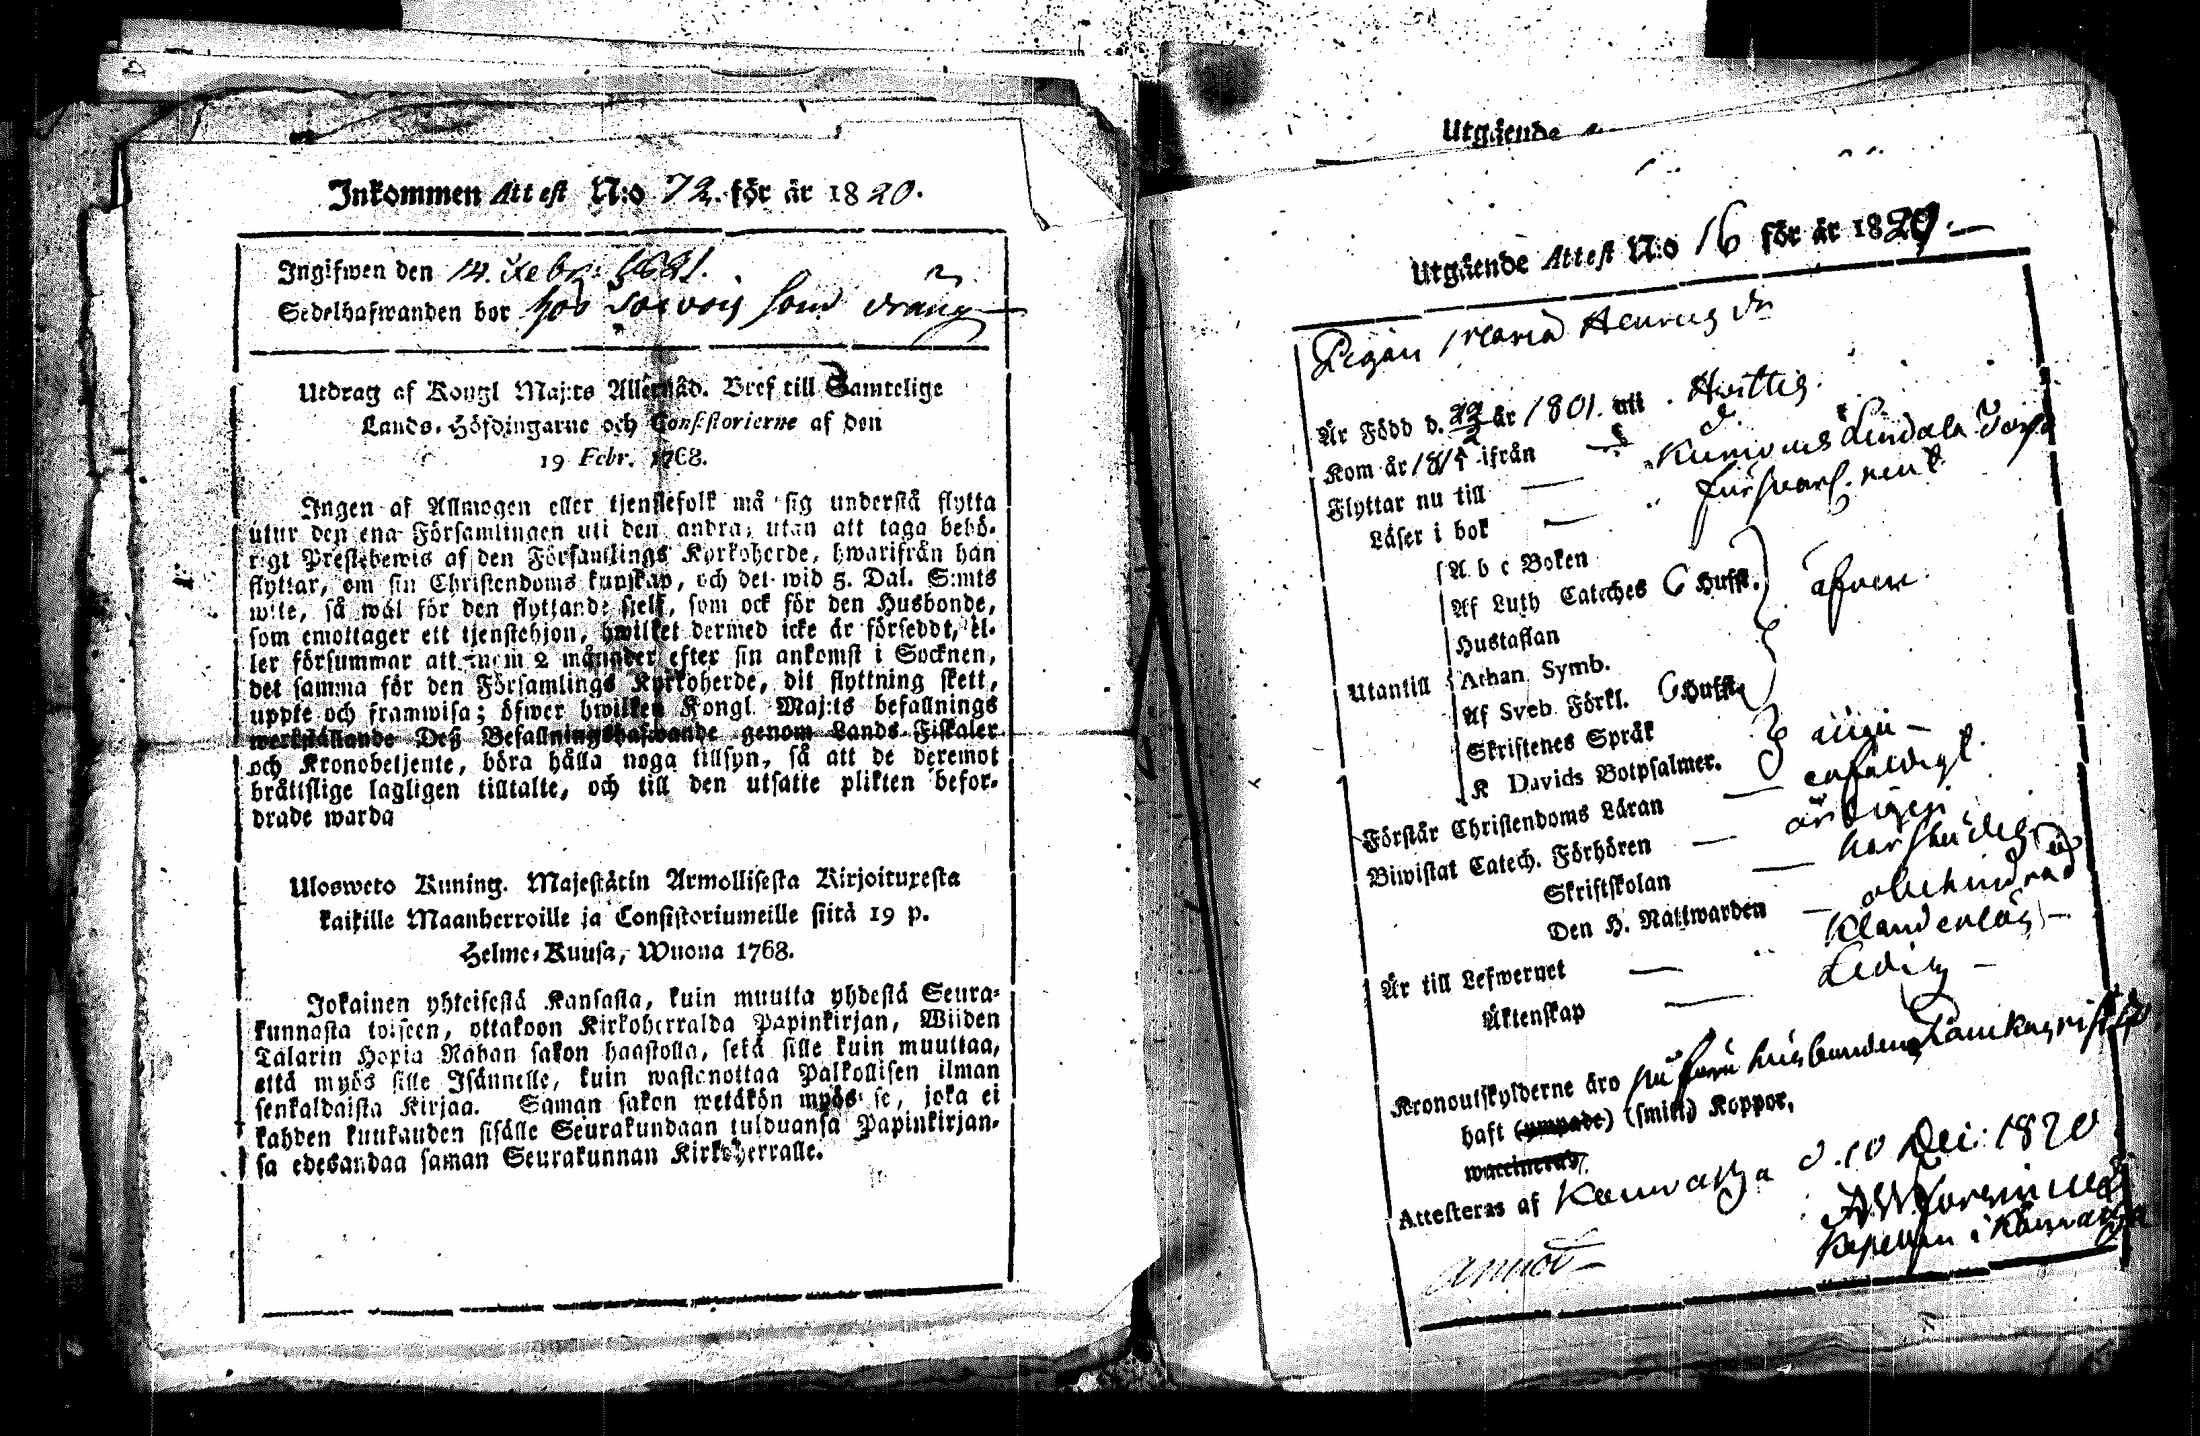 Inkommen Attest N:o 72. för år 1820.
Ingifwen den 14. Febr. 1821.
Sedelhafwanden bor hos som dräng
Utdrag af Kongl Maj:ts Allernåd. Bref till Samtelige
Lands-Höfdingarne och Consistorierne af den
19 Febr. 1768.
Ingen af Allmogen eller tjenstefolk må sig understå flytta
utur den ena Församlingen uti den andra, utan att taga behö-
rigt Prestebewis af den Församlings Kyrkoherde, hwarifrån han
flyttar, om sin Christendoms kunskap, och det wid 5. Dal. S:mts
wite, så wäl för den flyttande sjelf, som ock för den Husbonde,
som emottager ett tjenstehjon, hwilket dermed icke är försedt, el-
ler försummar att inom 2 månader efter sin ankomst i Socknen,
det samma för den Församlings Kyrkoherde, dit flyttning skett,
uppte och framwisa; öfwer hwilken Kongl. Maj:ts befallnings
werkställande Deß Befallningshafwande genom Lands-Fiskaler
och Kronobetjente, böra hålla noga tillsyn, så att de deremot
bråttslige lagligen tilltalte, och till den utsatte plikten befor-
drade warda
Ulosweto Kuning. Majestätin Armollisesta Kirjoituxesta
kaikille Maanherroille ja Consistoriumeille siitä 19 p.
Helme-Kuusa, Wuona 1768.
Jokainen yhteisestä Kansasta, kuin muutta yhdestä Seura-
kunnasta toiseen, ottakoon Kirkoherralda Papinkirjan, Wiiden
Talarin Hopia Rahan sakon haastolla, sekä sille kuin muuttaa,
että myös sille Isännelle, kuin wastanottaa Palkollisen ilman
senkaldaista Kirjaa. Saman sakon wetäkön myös se, joka ei
kahden kuukauden sisälle Seurakundaan tulduansa Papinkirjan-
sa edesandaa saman Seurakunnan Kirkoherralle.
Utgående
Utgående Attest N:o 16 för år 1820.
Pigan Maria Henrics dr
Är Född d. 22/2 år 1801. uti Hvittis.
Kom år 1815 ifrån
Flyttar nu till Kumo Lindala Torp
Läser i bok försvarl. rent
A b c Boken
Af Luth Cateches 6 Hufst.
Hustaflan
Utantill Athan Symb. äfven
Af Sveb Förkl. 6 Hufst
Skriftenes Språk
K Davids Botpsalmer.
Förstår Christendoms Läran enfaldigt
Biwistat Catech. Förhören
Skriftskolan
Den H. Nattwarden
Är till Lefwernet Klanderlös
Äktenskap Ledig
Kronoutskylderne äro
haft (ympade) (smitt) Koppor,
waccinerad,
Attesteras af d. 10 Dec: 1820
Kapellan i